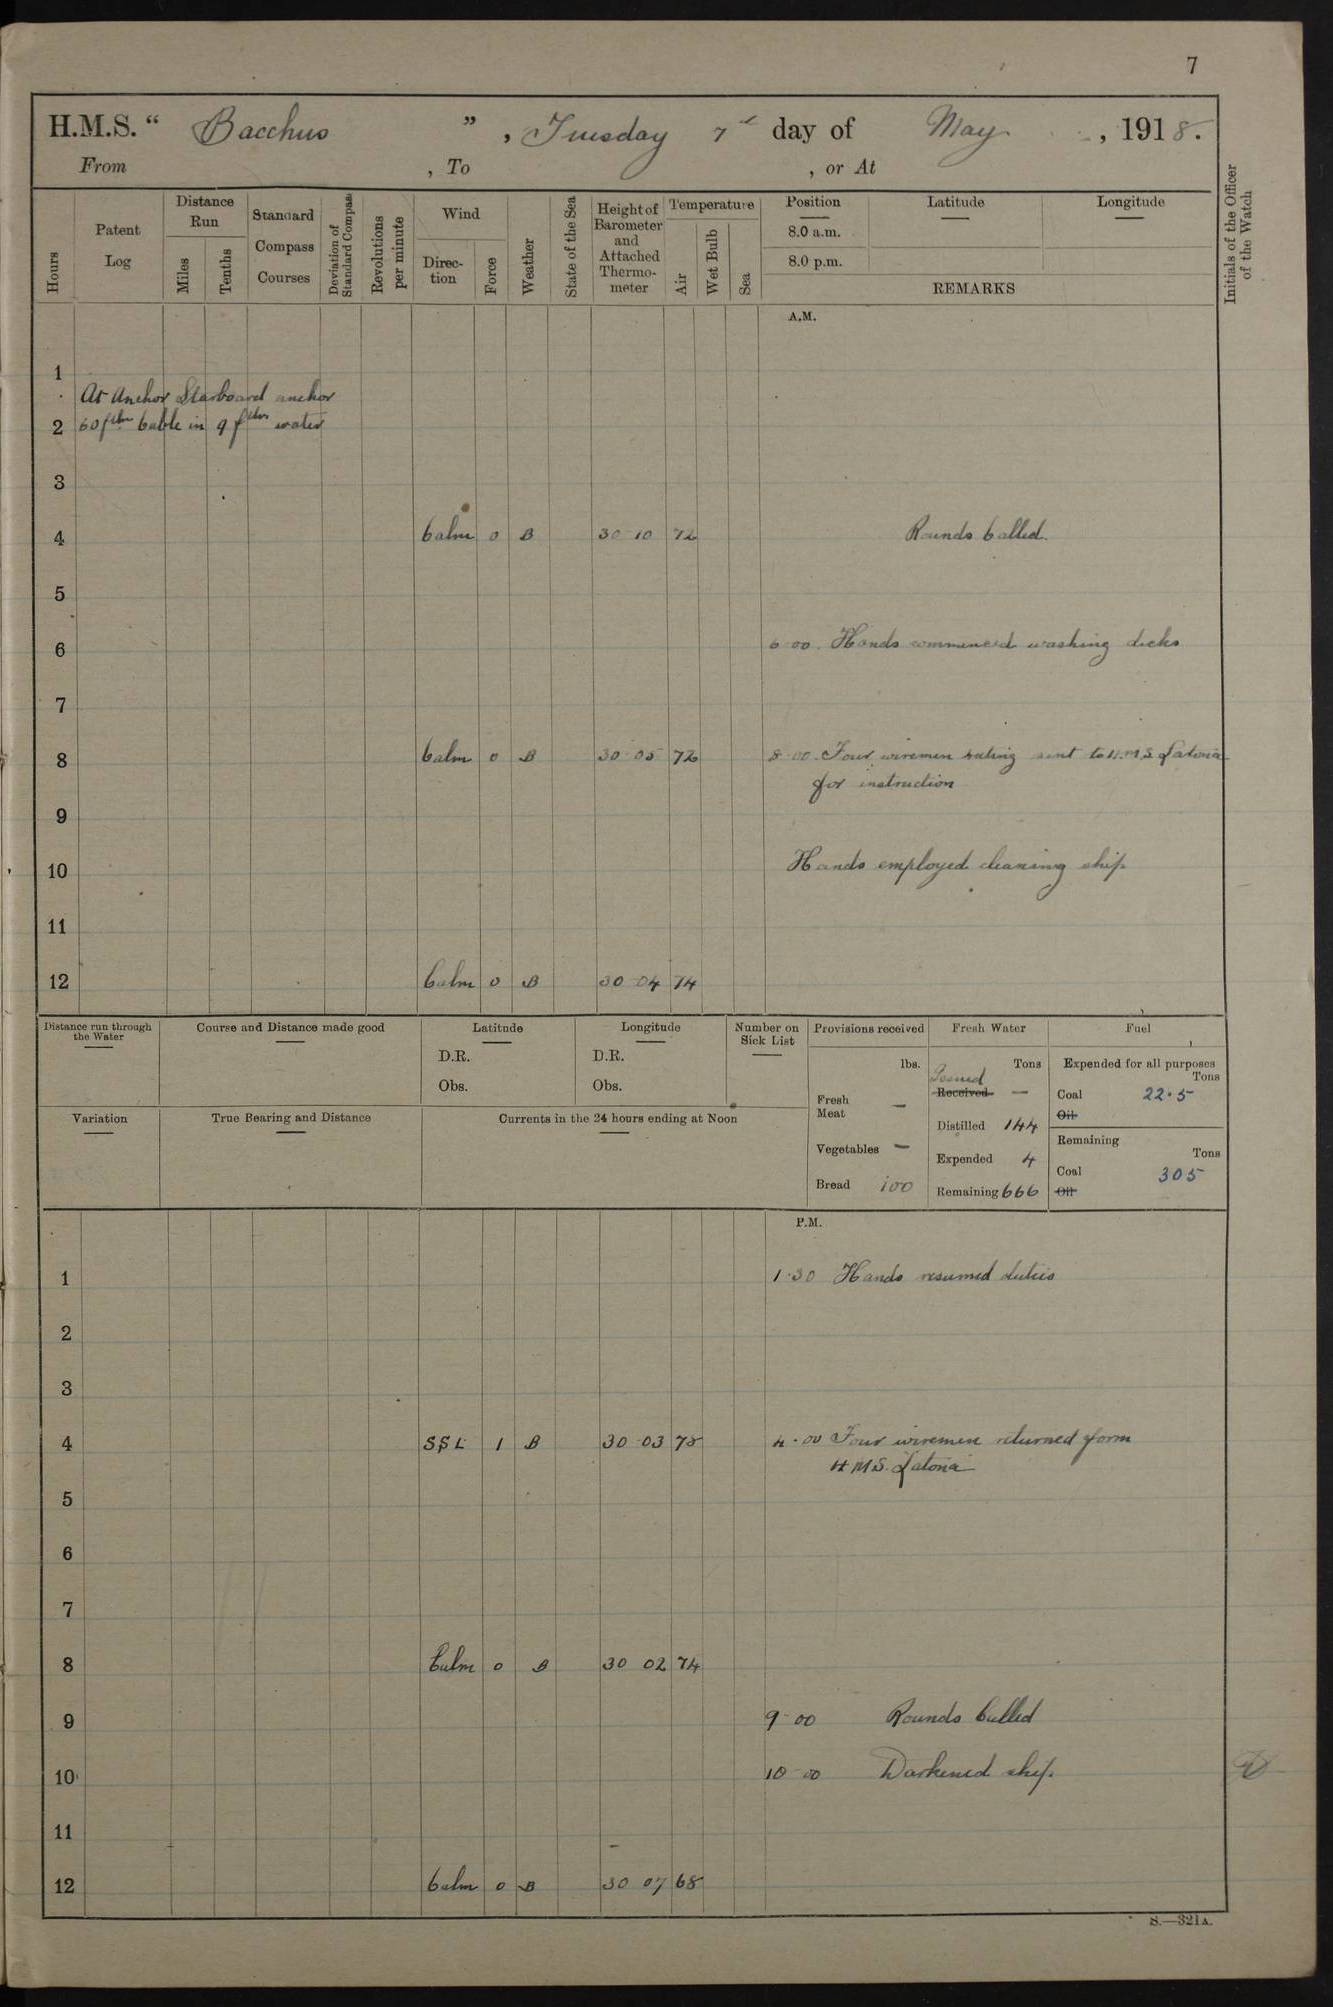 7
H.M.S. “ Bacchus ” , Tuesday 7th day of May , 1918.
From , To , or At
Hours
Patent Log
Distance Run
Miles
Tenths
Standard Compass Courses
Deviation of Standard Compass
Revolutions per minute
Wind
Direction
Force
Weather
State of the Sea
Height of Barometer and Attached Thermometer
Temperature
Air
Wet Bulb
Sea
Position Latitude Longitude
8.0 a.m.
8.0 p.m.
REMARKS
Initials of the Officer of the Watch
A.M.
1
At Anchor Starboard anchor
2 60 fthm Cable in 9 fthms water
3
4 Calm 0 B 30 10 72 Rounds Called.
5
6 6 00. Hands commenced washing decks
7
8 Calm 0 B 30 05 72 8 00. Four wiremen rating sent to H.M.S Latona
for instruction
9
10 Hands employed cleaning ship
11
12 Calm 0 B 30 04 74
Distance run through the Water
Course and Distance made good
Latitude
D.R.
Obs.
Longitude
D.R.
Obs.
Number on Sick List
Variation
True Bearing and Distance
Currents in the 24 hours ending at Noon
Provisions received
lbs.
Fresh Meat —
Vegetables —
Bread 100
Fresh Water
Tons
Issued
Received —
Distilled 144
Expended 4
Remaining 666
Fuel
Expended for all purposes
Tons
Coal 22.5
Oil
Remaining
Tons
Coal 305
Oil
P.M.
1 1.30 Hands resumed duties
2
3
4 1 B 30 03 78 4.00 Four wiremen returned form
H M S. Latona
5
6
7
8 Calm 0 B 30 02 74
9 9 00 Rounds Called
10 10 00 Darkened ship.
11
12 Calm 0 B 30 07 68
S.—321A.